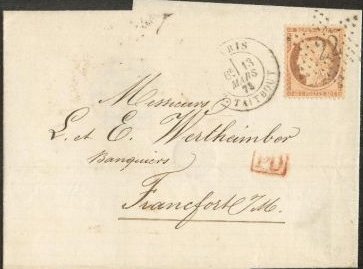 RIS
13
MARS
TAITBOUT
22
Messieurs
L. et E. Wertheimber
Banquiers
PD
Francfort s/M.